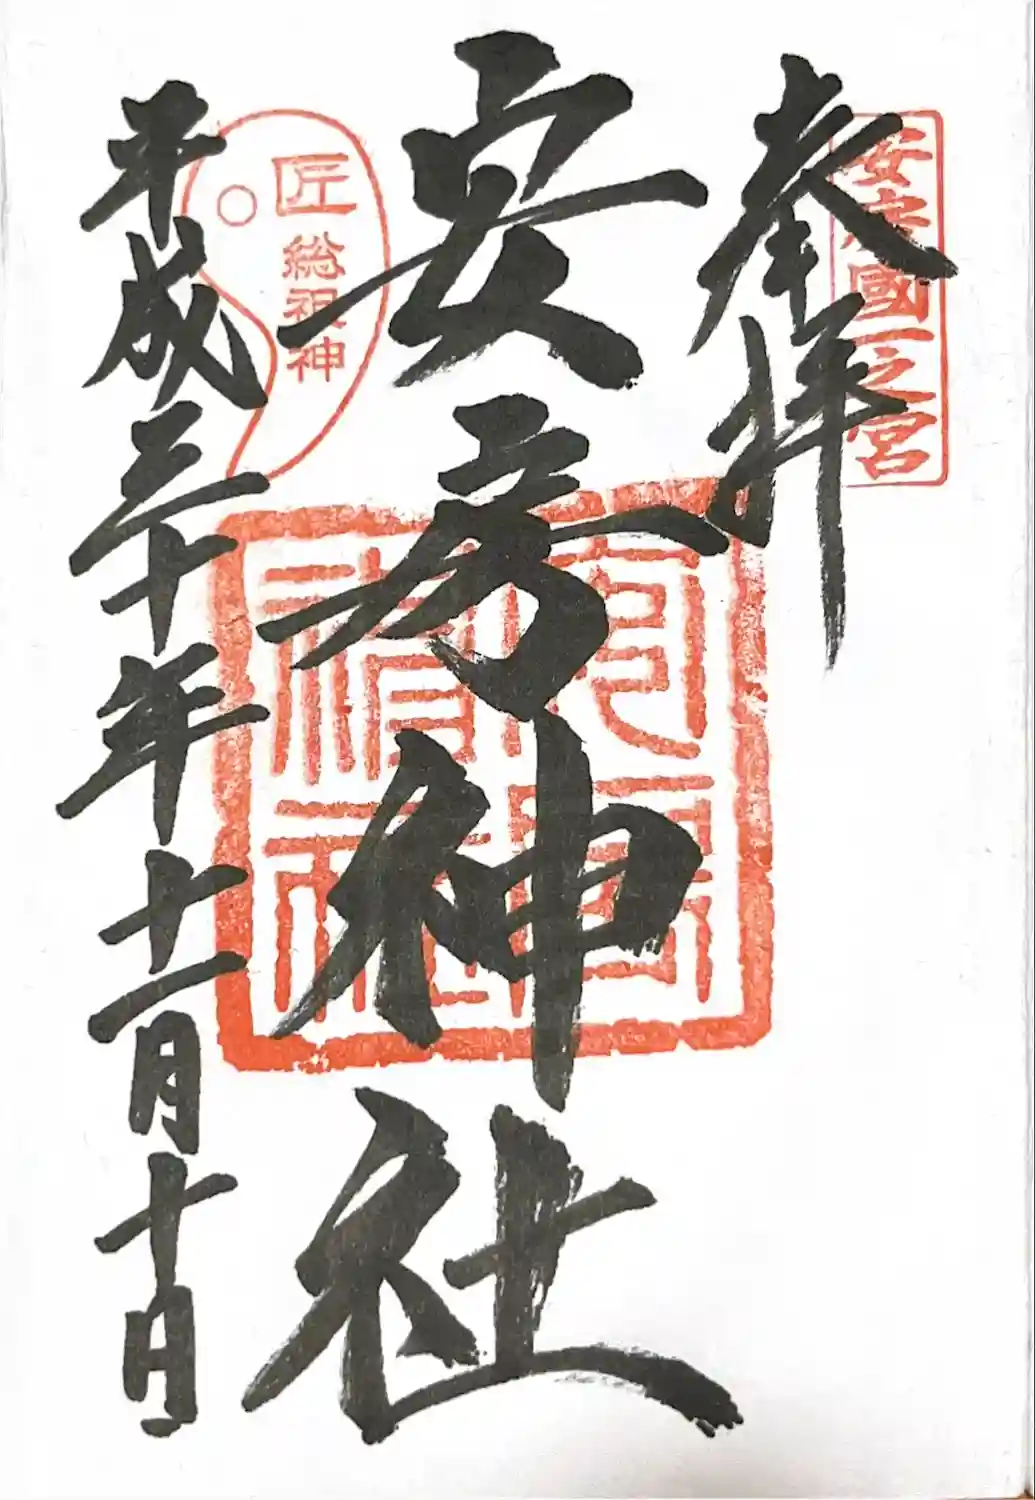 奉拝
安房國一之宮
安房神社
匠総祖神
平成三十年十一月十日